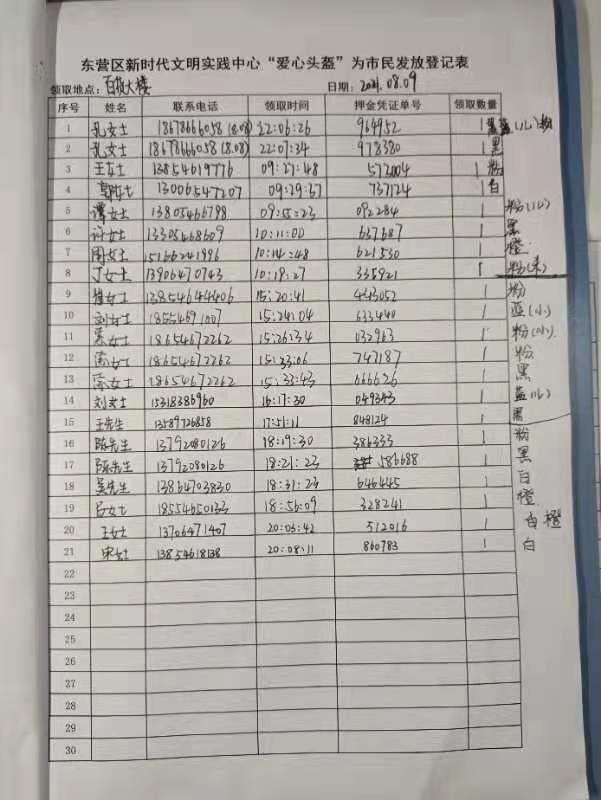 东营区新时代文明实践中心“爱心头盔”为市民发放登记表
领取地点：百货大楼 日期：2021.08.09
序号 姓名 联系电话 领取时间 押金凭证单号 领取数量
1 孔女士 18678666058 (8.08) 22:06:26 964952 1 蓝(儿)粉
2 孔女士 18678666058 (8.08) 22:07:34 978380 1 黑
3 王女士 13854619776 09:27:48 572004 1 粉
4 女士 13006547207 09:29:57 737124 1 白
5 谭女士 13805466798 09:55:23 092284 1 粉(儿)
6 许女士 13305468609 10:11:00 637687 1 黑
7 周女士 15166241996 10:14:48 621530 1 橙
8 丁女士 13906470743 10:19:27 335921 1 粉
9 女士 13854644406 15:20:41 443052 1 粉
10 刘女士 18554691007 15:24:04 633440 1 蓝(小)
11 女士 18654672262 15:26:34 032963 1 粉(小)
12 女士 18654672262 15:33:06 747187 1 粉
13 女士 18654672262 15:33:43 666626 1 黑
14 刘女士 15318386960 16:17:30 049343 1 蓝(儿)
15 王先生 13589726858 17:51:11 848124 1 黑
16 陈先生 13792080126 18:19:30 386333 1 粉
17 陈先生 13792080126 18:21:23 586688 1 黑
18 吴先生 13864703830 18:31:23 646445 1 白
19 吕女士 18554650133 18:56:09 328241 1 橙
20 王女士 13706471407 20:03:42 512016 1 白 橙
21 宋女士 13854618138 20:08:11 860783 1 白
22
23
24
25
26
27
28
29
30